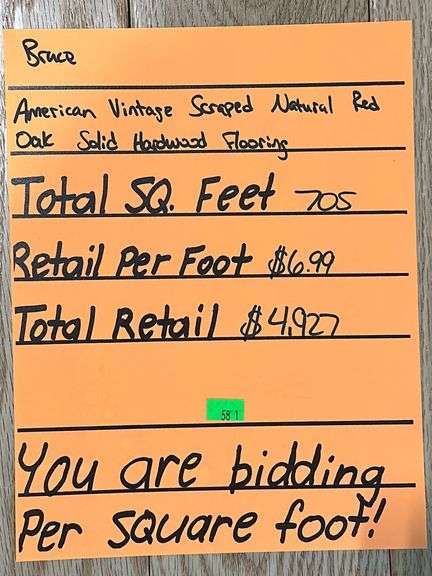 Bruce
American Vintage Scraped Natural Red
Oak Solid Hardwood Flooring
Total SQ. Feet 705
Retail Per Foot $6.99
Total Retail $4,927
58 1
You are bidding
Per square foot!